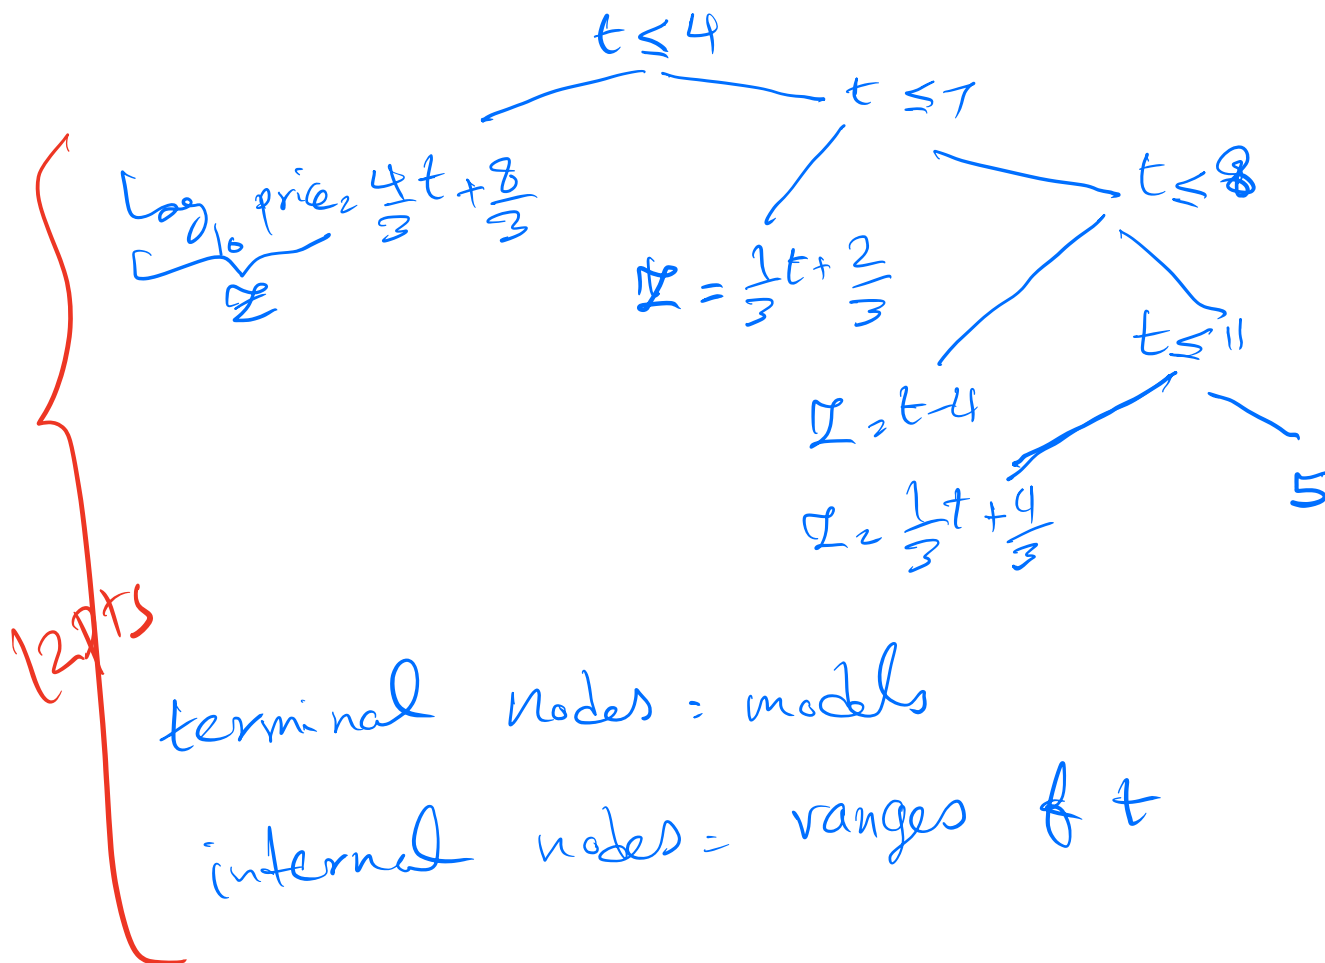 t ≤ 4
t ≤ 7
t ≤ 8
log₁₀ price = 4/3 t + 8/3
z
z = 1/3 t + 2/3
t ≤ 11
z = t - 4
5
z = 1/3 t + 4/3
12pts
terminal nodes = models
internal nodes = ranges of t